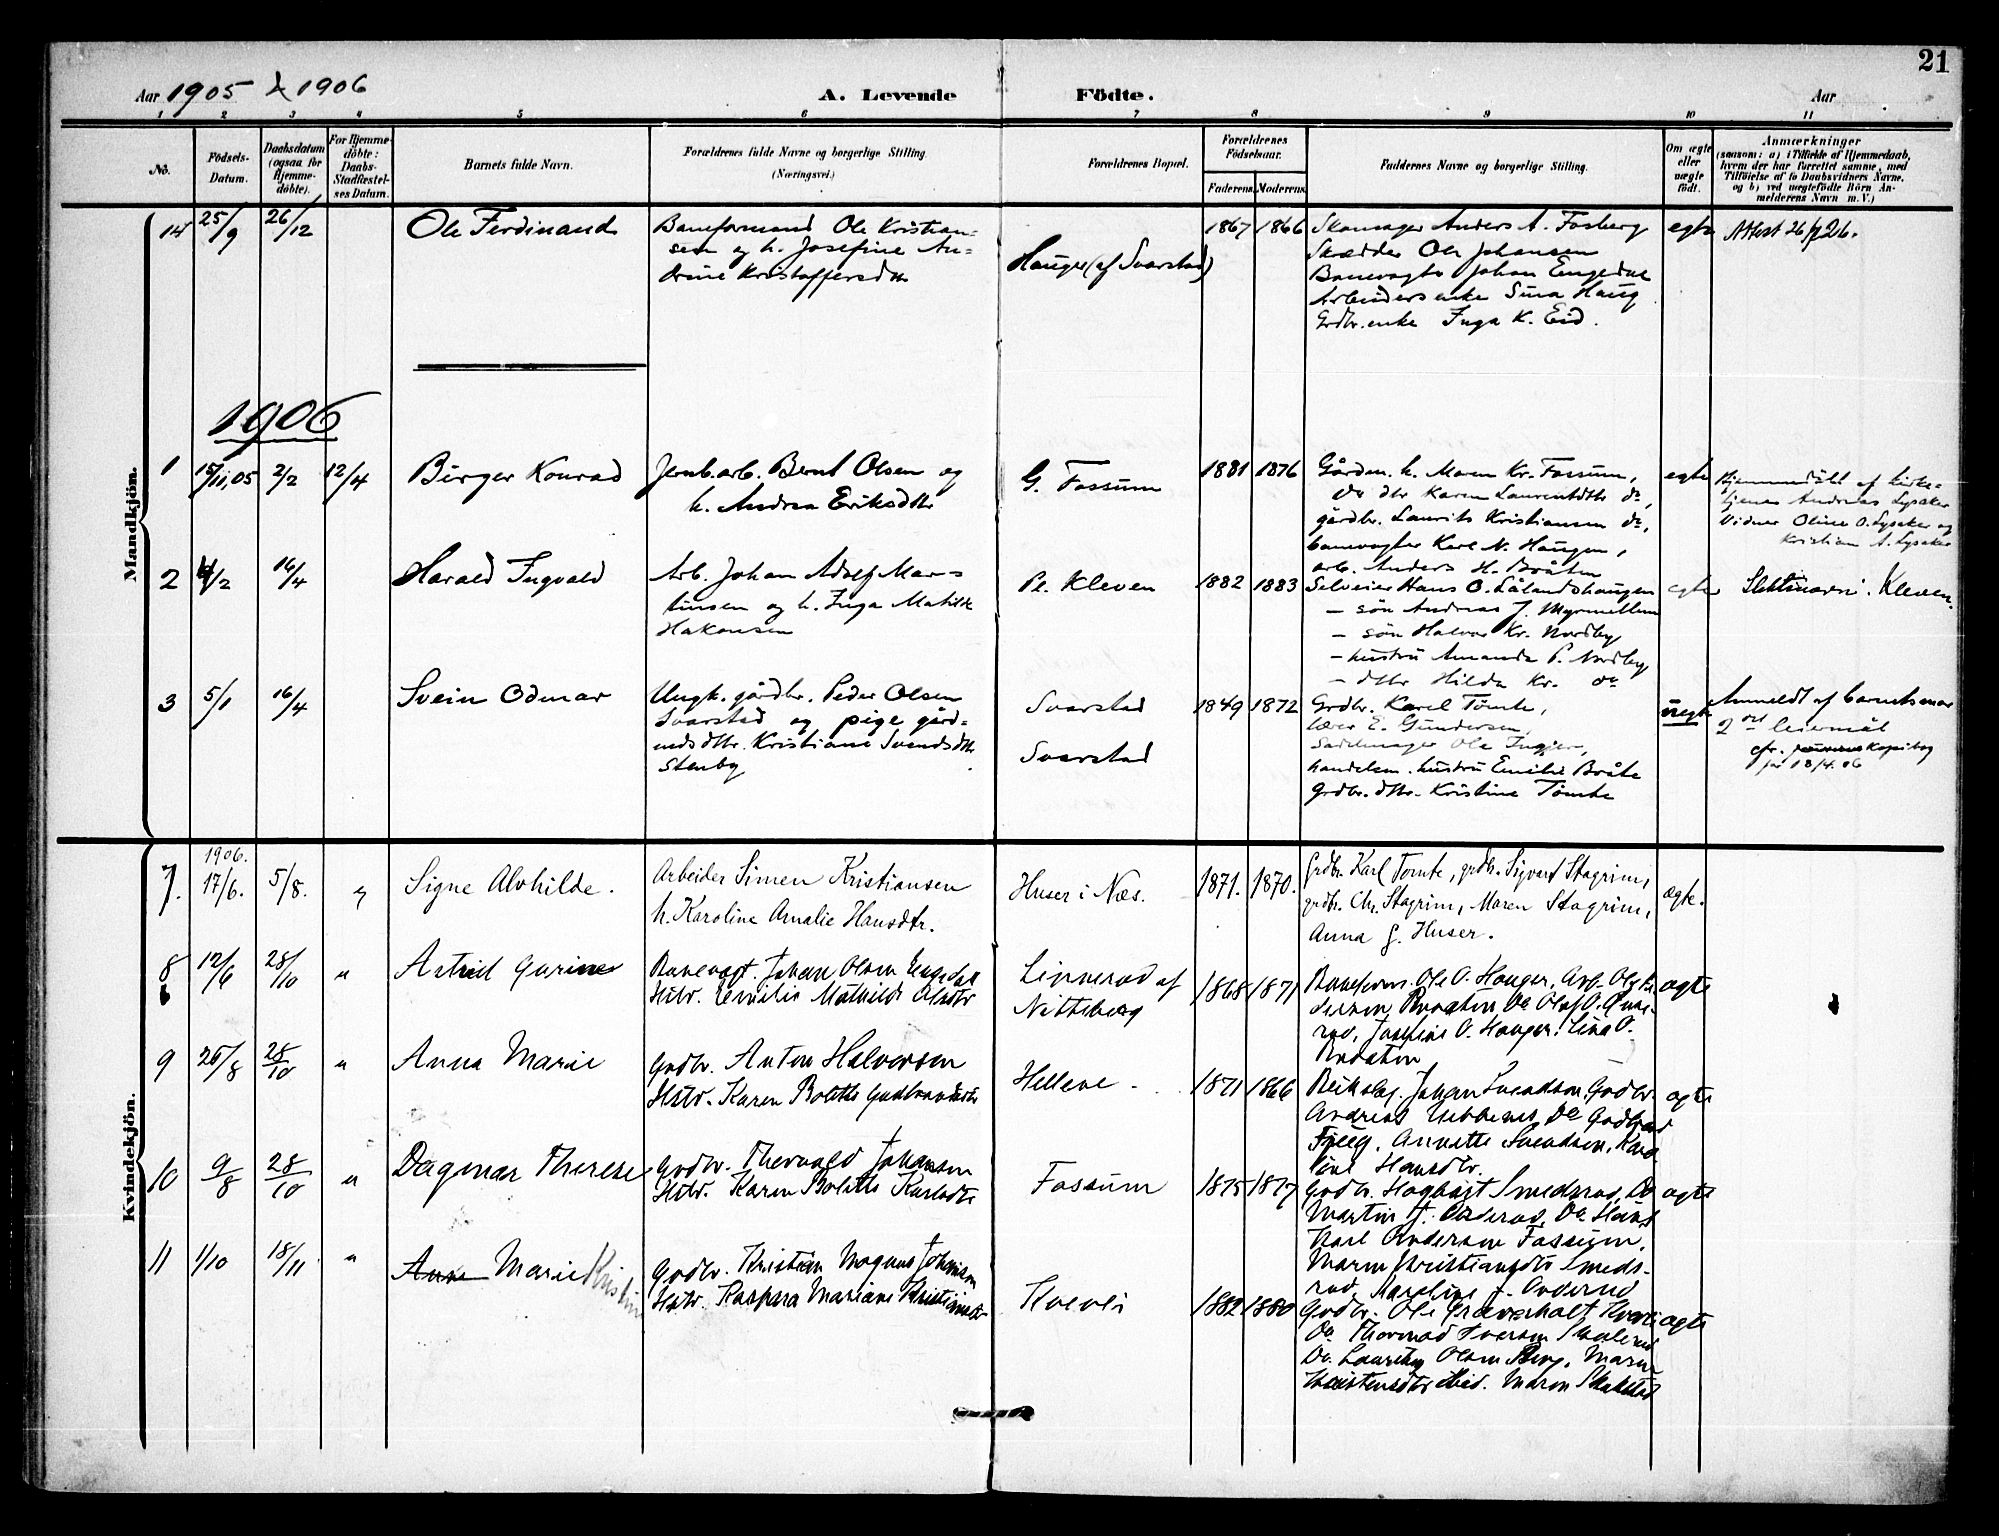 21
Aar 1905 & 1906
A. Levende Födte.
Aar
1 2 3 4 5 6 7 8 9 10 11
No.
Födsels-
Datum.
Daabsdatum
(ogsaa for
Hjemme-
döbte).
For Hjemme-
döbte:
Daabs-
Stadfæstel-
ses Datum.
Barnets fulde Navn.
Forældrenes fulde Navne og borgerlige Stilling.
(Næringsvei.)
Forældrenes Bopæl.
Forældrenes
Födselsaar.
Faderens. Moderens.
Faddernes Navne og borgerlige Stilling.
Om ægte
eller
uægte
födt.
Anmærkninger
(saasom: a) i Tilfælde af Hjemmedaab,
hvem der har forrettet samme, med
Tilföielse af to Daabsvidners Navne,
og b) ved uægtefödte Börn An-
melderens Navn m. V.)
Mandkjön.
14 25/9 26/12
Ole Ferdinand
Baneformand Ole Kristian-
sen og h. Josefine An-
drine Kristoffersdtr
Hauger (af Svarstad)
1867 1866
Skomager Anders A. Fosberg
Skrædder Ole Johansen
Banevogter Johan Engedal
Arbeidersenke Sina Haug
Grdbr.enke Inga K. Eid.
egte
Attest 26/7 26.
1906
1 15/11,05 2/2 12/4
Birger Konrad
Jernb.arb. Bernt Olsen og
h. Andrea Eriksdtr
G. Fossum
1881 1876
Gårdm. h. Maren Kr. Fossum,
do dtr Karen Laurentsdtr do,
gårdbr. Laurits Kristiansen do,
banevogter Karl N. Haugen,
arb. Anders H. Bråten
egte
Hjemmedöbt af kirke-
tjener Andreas Lysaker
Vidner Oline O. Lysaker og
Kristian A. Lysaker
2 4/2 16/4
Harald Ingvald
Arb. Johan Adolf Mar-
tinsen og h. Inga Matilde
Hakonsen
Pl. Kleven
1882 1883
Selveier Hans O. Sålandshaugen
— sön Andreas J. Myrmellem
— sön Halvor Kr. Nordby
— hustru Amanda P. Nordby
— dtr Hilda Kr. do
egte
Slektsnavn: Kleven.
3 5/1 16/4
Svein Odmar
Ungk. gårdbr. Peder Olsen
Svarstad og pige gård-
mdsdtr. Kristiane Svendsdtr
Stenby
Svarstad
Svarstad
1849 1872
Grdbr. Karel Tömte,
lærer E. Gundersen,
Sadelmager Ole Ingjer,
handelsm. hustru Emilie Bråte
Grdbr. dtr. Kristine Tömte
uegte
Anmeldt af barnets mor
2det leiermål
cfr. Kopibog
for 18/4.06
Kvindekjön.
1906.
7. 17/6. 5/8. "
Signe Alvhilde.
Arbeider Simen Kristiansen
h. Karoline Amalie Hansdtr.
Huser i Næs.
1871. 1870.
Grdbr. Karl Tomte, grdbr. Sigvard Stagrim,
grdbr. Chr. Stagrim, Maren Stagrim,
Anna G. Huser.
ægte.
8 12/6 28/10 "
Astrid Gurine
Banevogt. Johan Olsen Engedal
Hstr. Emilie Mathilde Olsdtr
Linnerud af
Nitteberg
1868 1871
Baneform. Ole O. Hauger, Arb. Ole Pe-
dersen Braaten Do Olaf O.
rud, Josefine O. Hauger, Lina O.
Braaten
ægte
9 25/8 28/10 "
Anna Marie
Grdbr. Anton Halvorsen
Hstr. Karen Bolette Gudbrandsdtr
Hellene -
1871 1866
Johan Svendsen, Grdbr.
Andreas Do
Annette Svendsen, Karo-
line Hansdtr.
ægte
10 9/8 28/10 "
Dagmar Therese
Grdbr. Thorvald Johansen
Hstr. Karen Bolette Karlsdtr
Fossum
1875 1877
Grdbr. Smedsrud, Do
Martin J. Onderud, Do Hans
Karl Andersen Fossum,
Maren Kristiansdtr Smeds-
rud, Karoline J. Onderud
ægte
11 1/10 18/11 "
Anne Marie Kristine
Grdbr. Kristian Magnus Johansen
Hstr. Kaspara Mariane Kristiansdtr
Kveili
1882 1880
Grdbr. Ole
Do Thorvald Iversen
Do. Olsen Berg, Maren
Eid. Maren
ægte